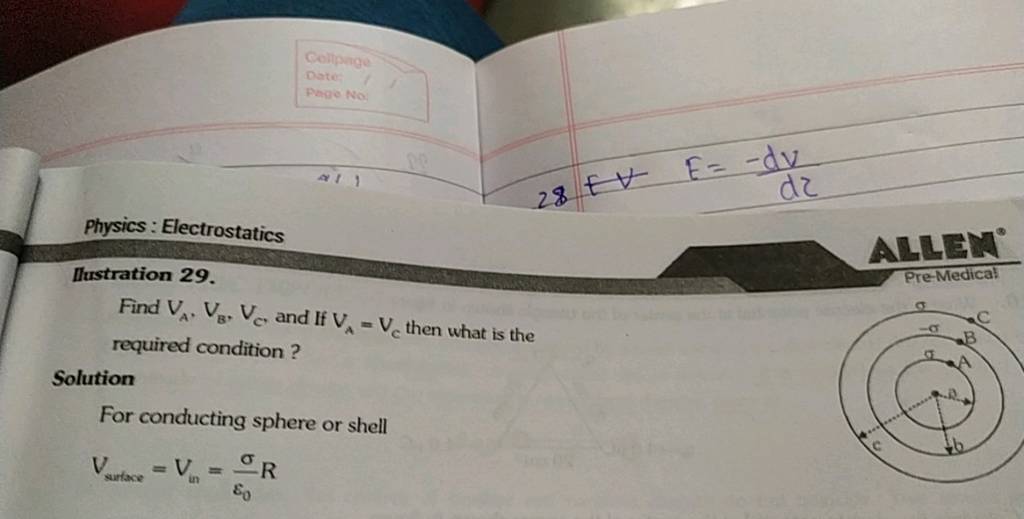 Cellpage
Date: / /
Page No:
28 E V E = -dv
dz
Physics : Electrostatics
ALLEN®
Pre-Medical
Illustration 29.
Find V_A, V_B, V_C, and If V_A = V_C then what is the
required condition ?
Solution
For conducting sphere or shell
V_surface = V_in = σ/ε₀ R
σ
C
-σ
B
σ
A
a
b
c